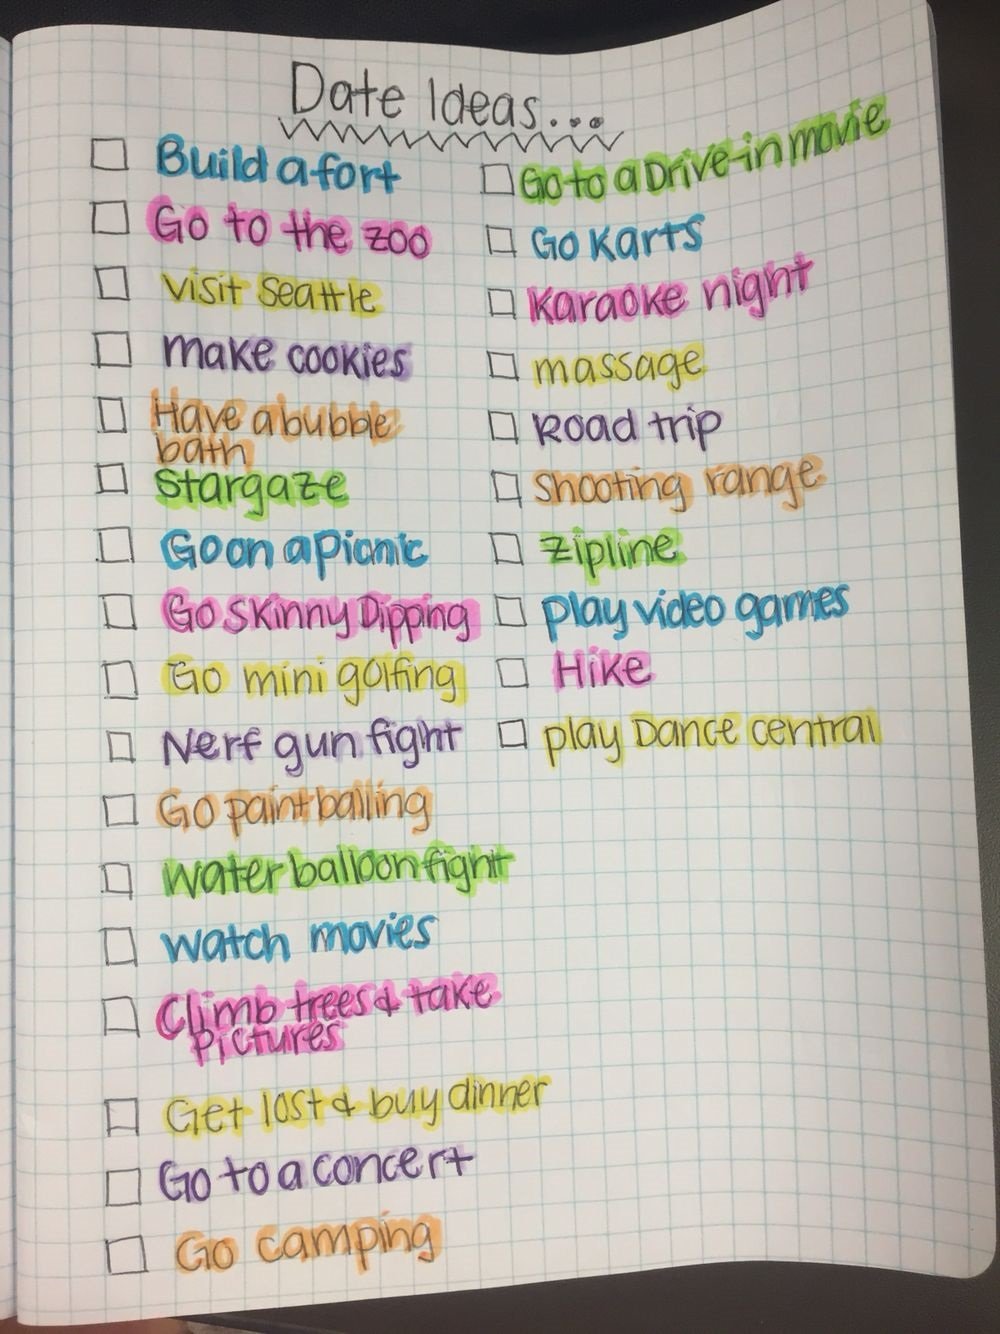 Date Ideas...
Build a fort
Go to the zoo
visit Seattle
make cookies
Have a bubble
bath
Stargaze
Go on a Picnic
Go Skinny Dipping
Go mini golfing
Nerf gun fight
Go paintballing
water balloon fight
watch movies
Climb trees & take
Pictures
Get lost & buy dinner
Go to a concert
Go camping
Go to a Drive-in movie
Go Karts
Karaoke night
massage
Road trip
Shooting range
Zipline
play video games
Hike
play Dance central